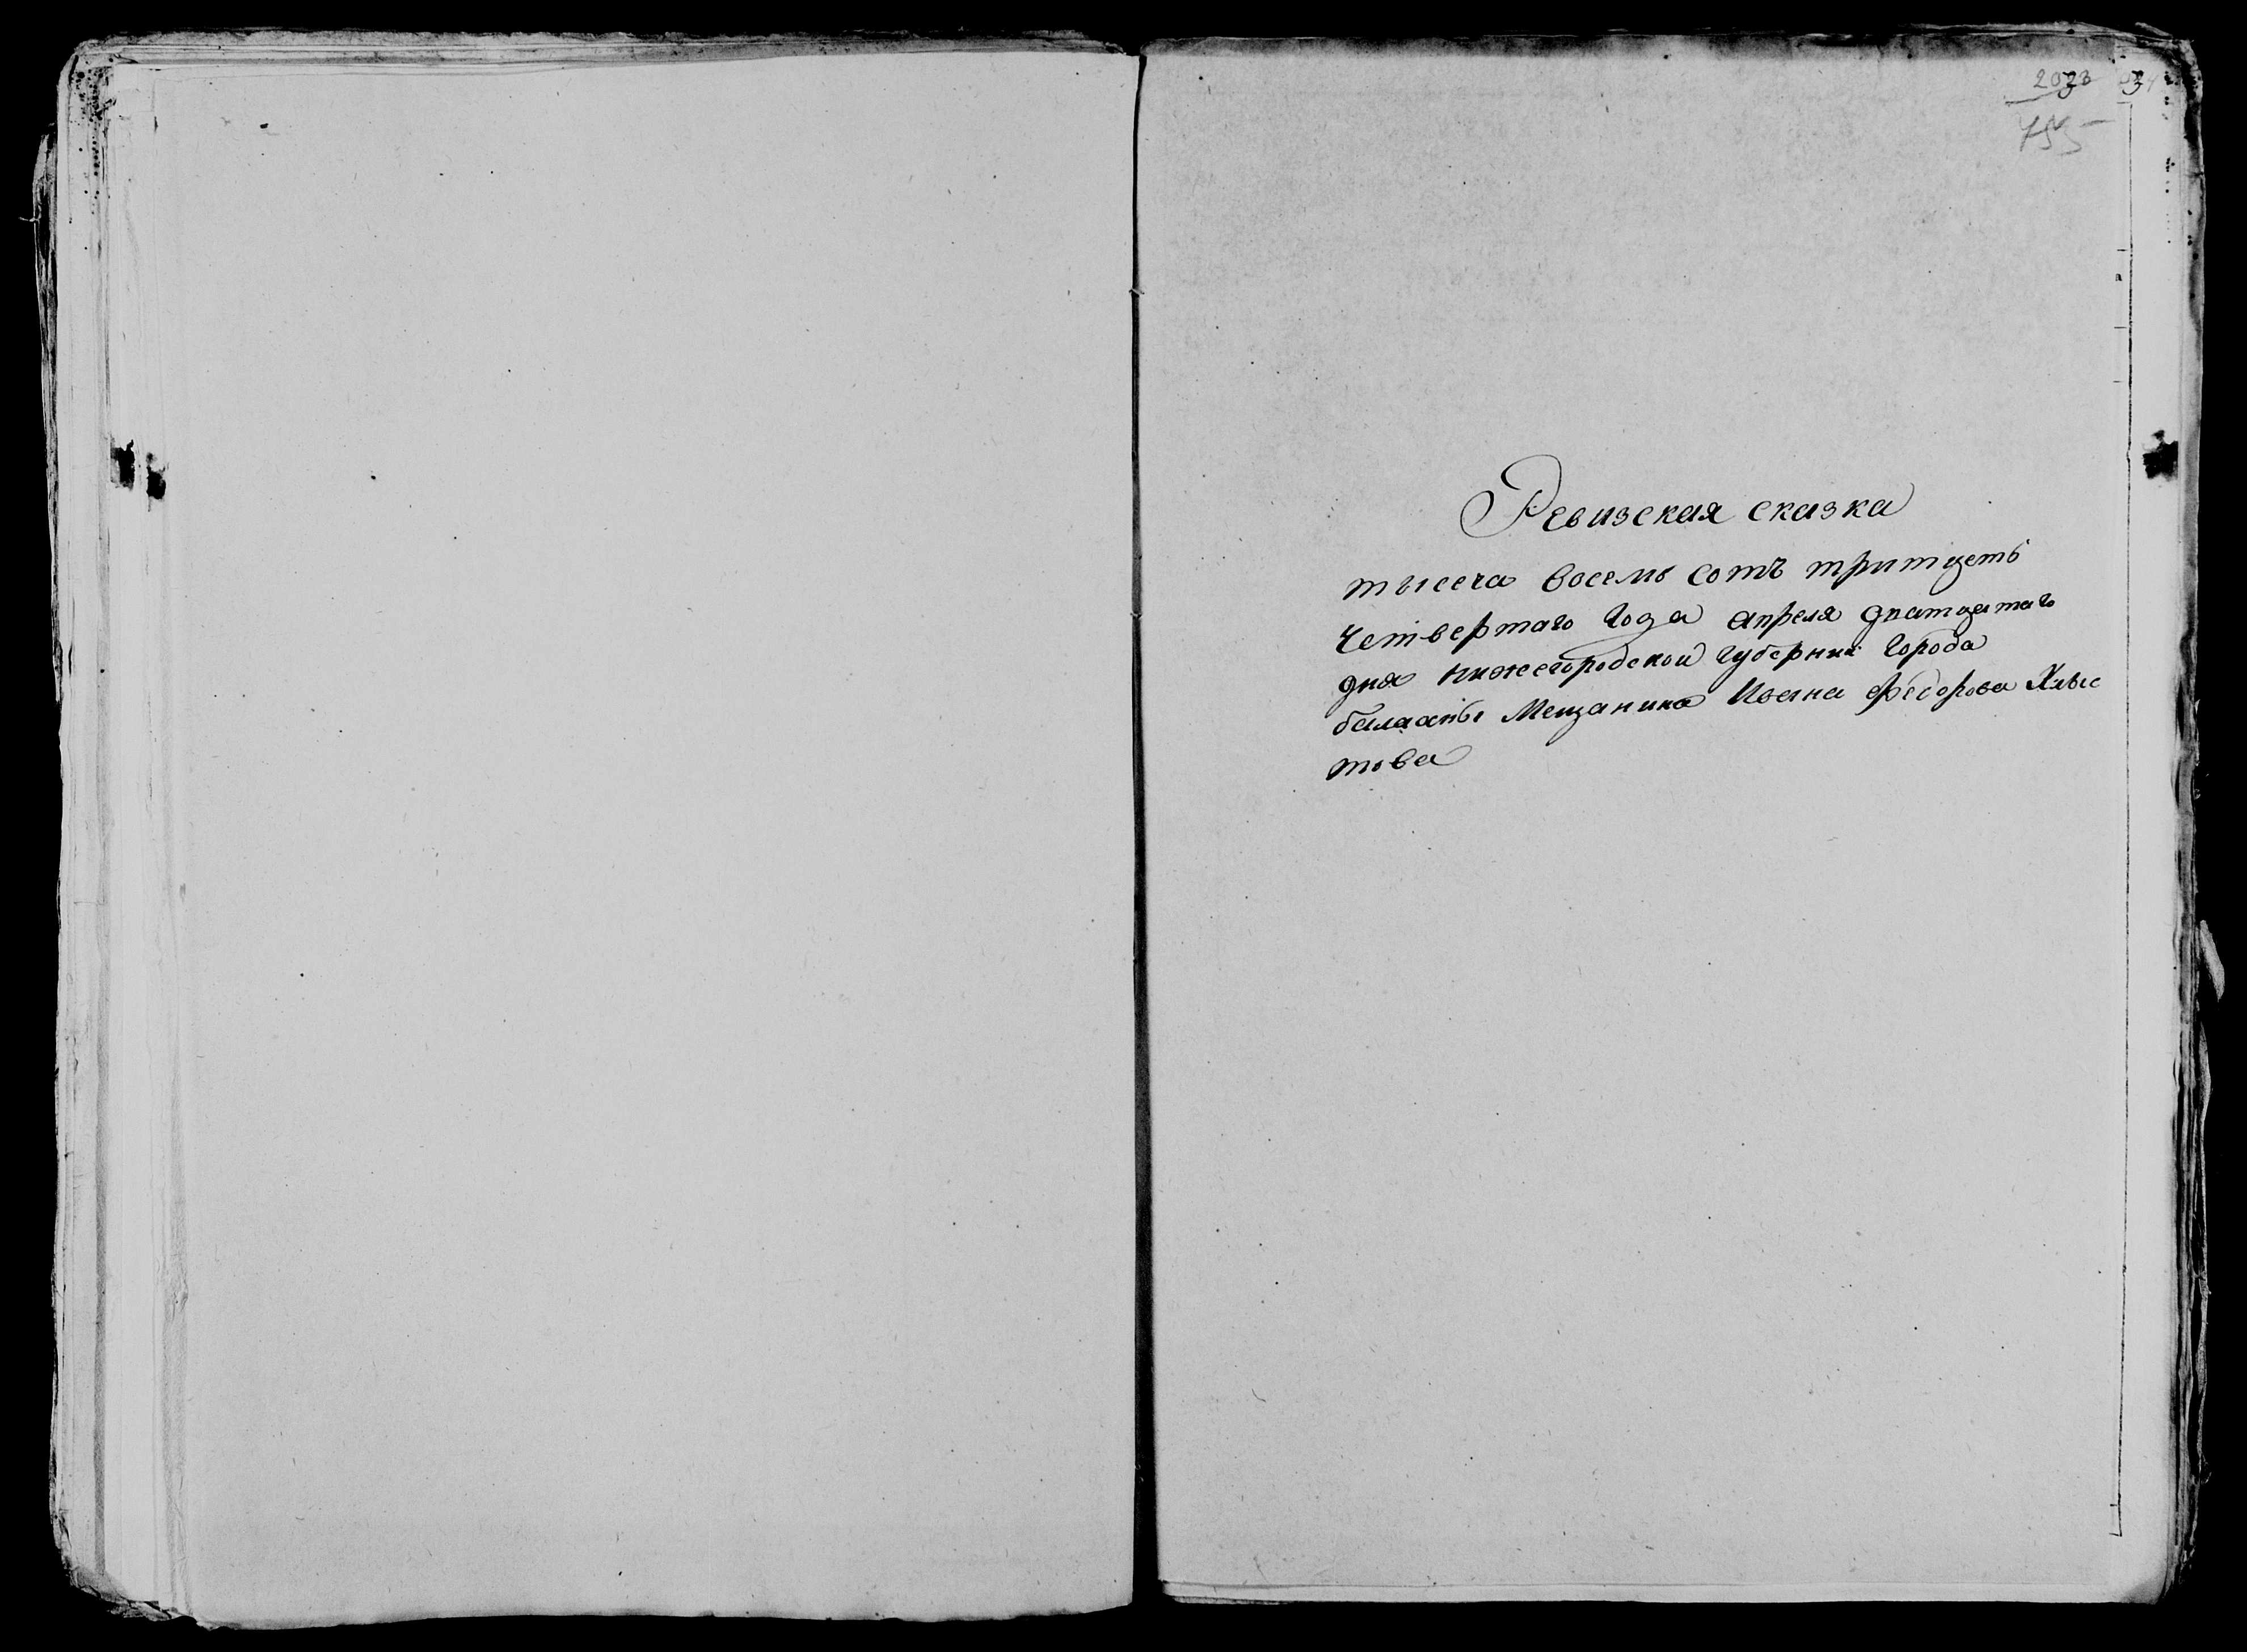 2033
755
Ревизская сказка
тысеча восемь сотъ тритцеть
четвертаго Года апреля дватцатаго
дня нижегородской губернии Города
балахны Мещанина Ивана Федорова Хлыс
това